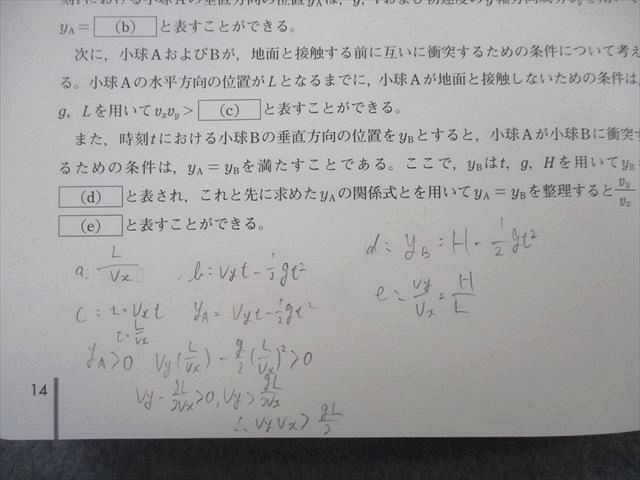 刻tにおける小球Aの垂直方向の位置yAは，g，tおよび初速度のy軸方向成分vyを用い
yA＝ (b) と表すことができる。
次に，小球AおよびBが，地面と接触する前に互いに衝突するための条件について考え
る。小球Aの水平方向の位置がLとなるまでに，小球Aが地面と接触しないための条件は，
g，Lを用いてvxvy＞ (c) と表すことができる。
また，時刻tにおける小球Bの垂直方向の位置をyBとすると，小球Aが小球Bに衝突す
るための条件は，yA＝yBを満たすことである。ここで，yBはt，g，Hを用いてyB
(d) と表され，これと先に求めたyAの関係式とを用いてyA＝yBを整理するとvy/vx
(e) と表すことができる。
a: L/Vx
b: Vyt-1/2gt²
d: yB = H - 1/2gt²
c: L=Vxt
yA = Vyt-1/2gt²
e: Vy/Vx = H/L
t=L/Vx
yA>0 Vy(L/Vx) - g/2(L/Vx)²>0
Vy-gL/2Vx>0, Vy>gL/2Vx
∴ VyVx > gL/2
14